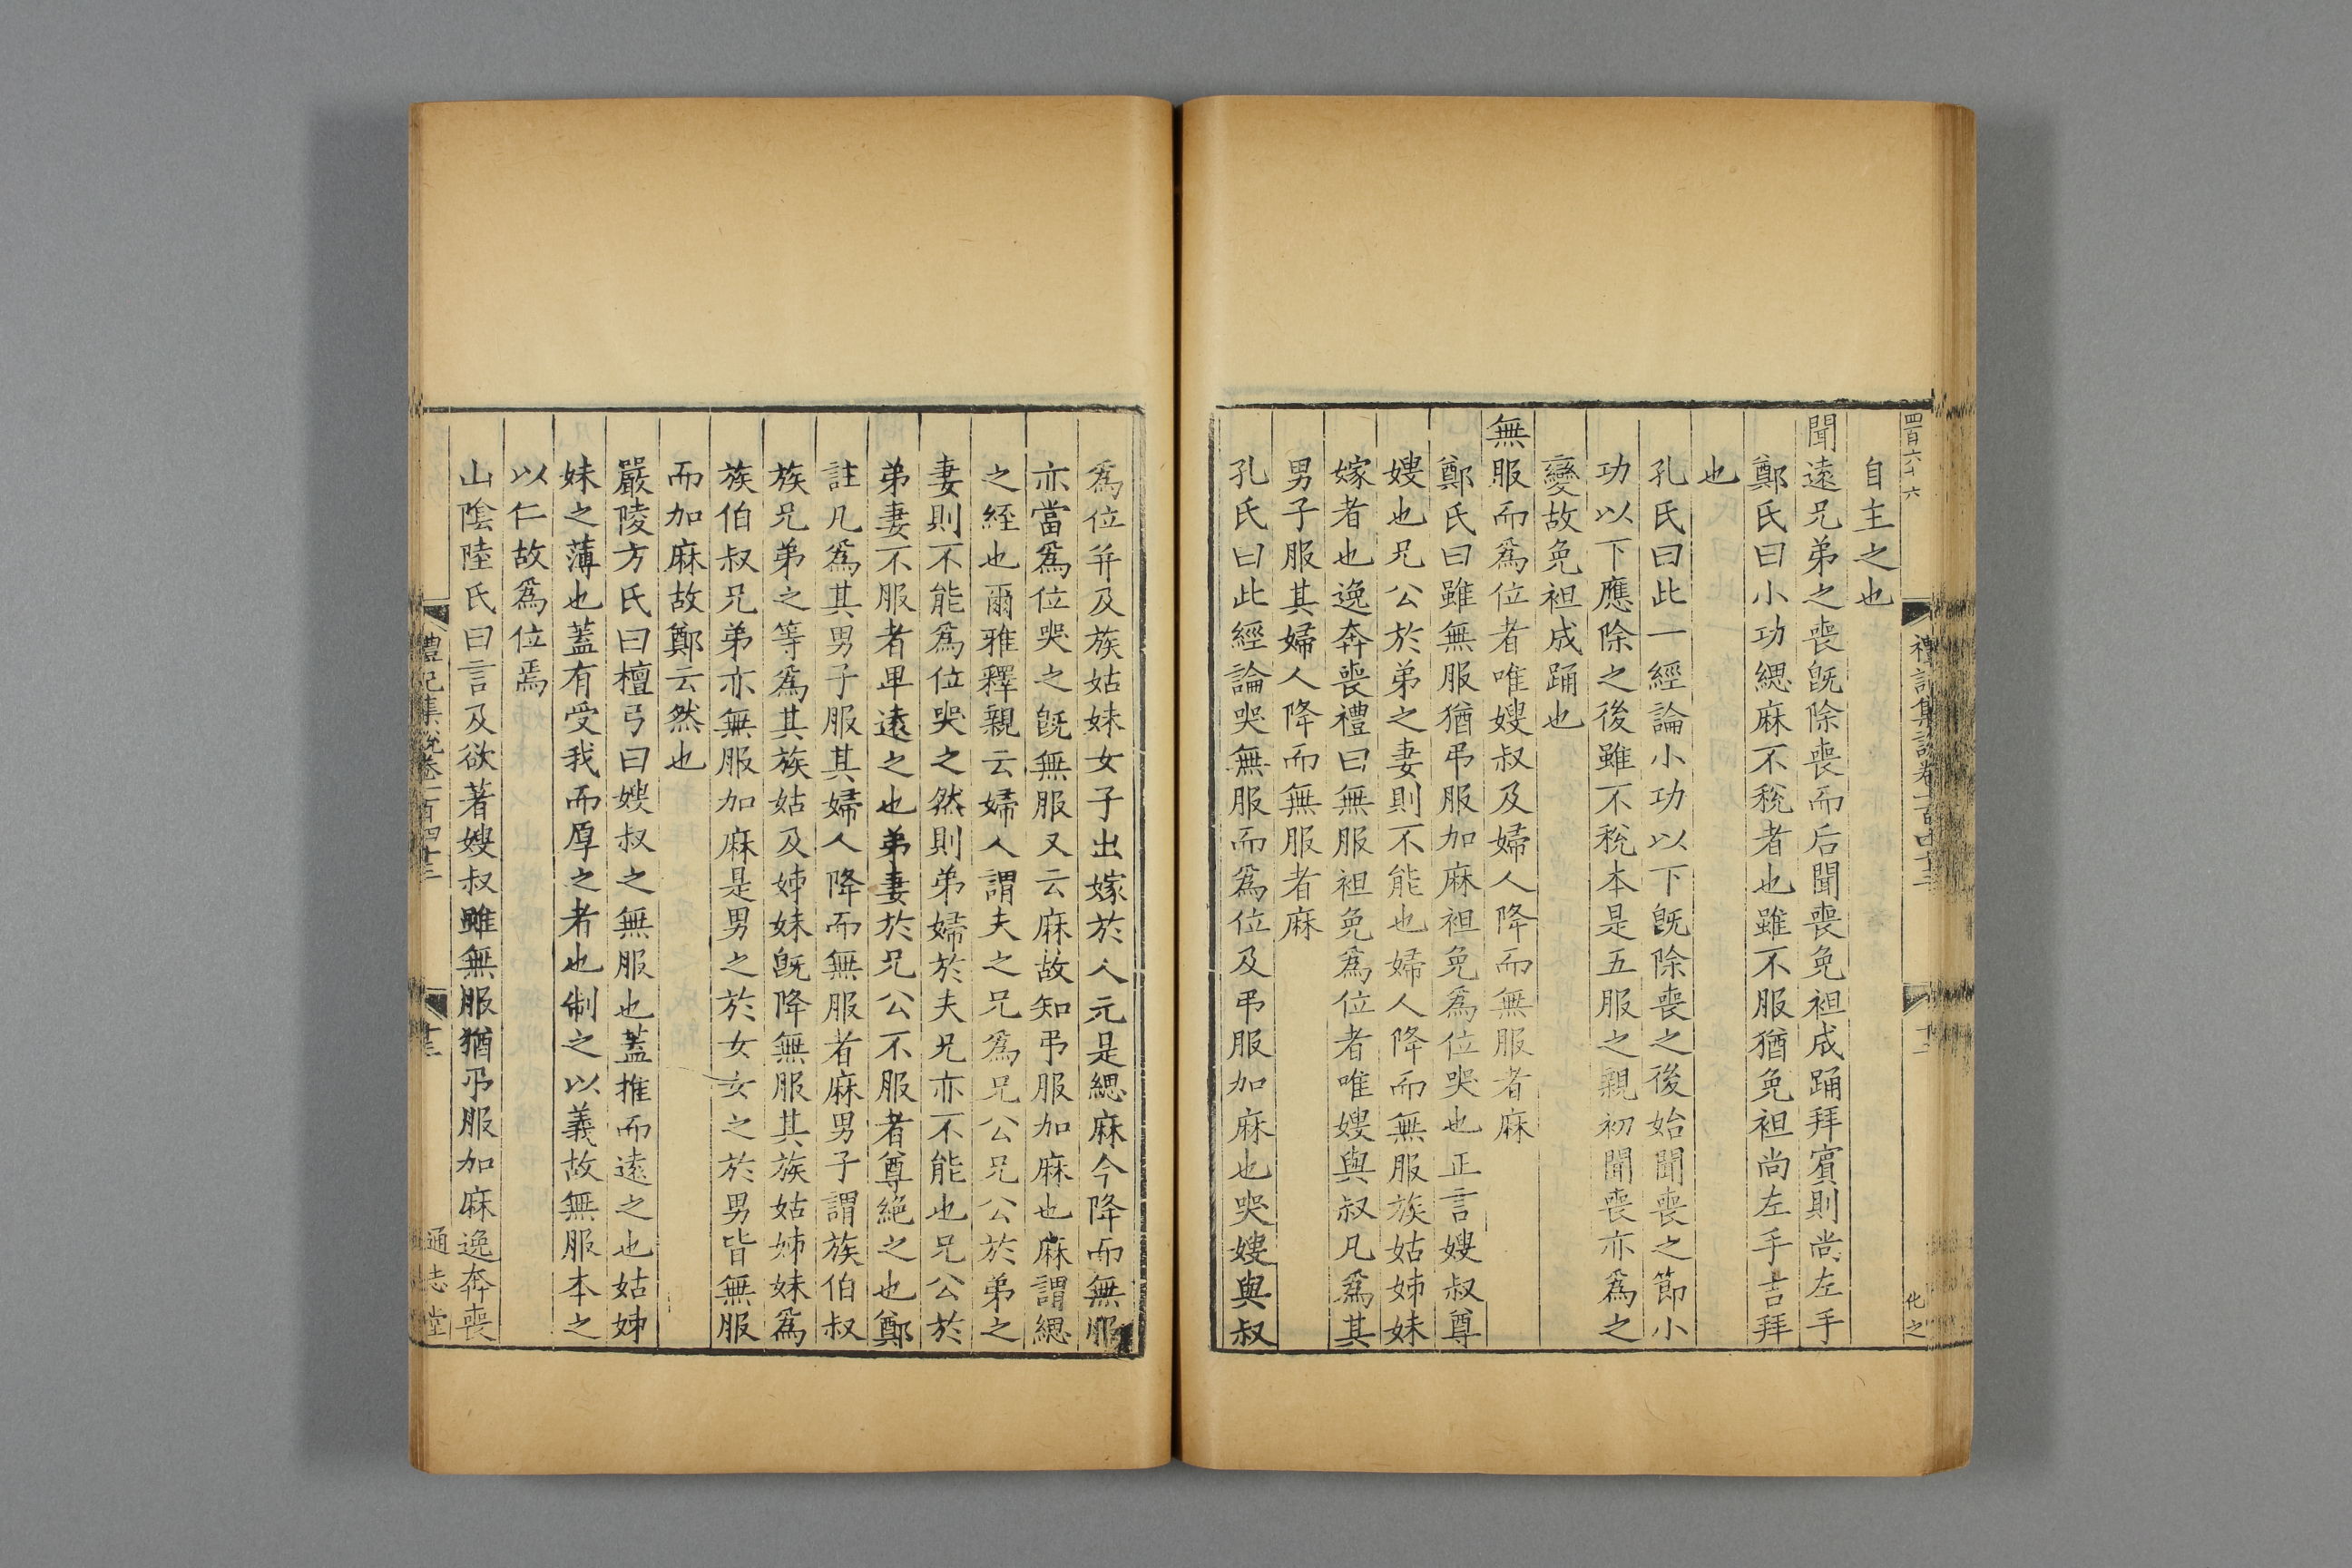 四百六十六
自主之也
聞遠兄弟之喪旣除喪而后聞喪免袒成踊拜賓則尚左手
鄭氏曰小功緦麻不稅者也雖不服猶免袒尚左手吉拜
也
孔氏曰此一經論小功以下旣除喪之後始聞喪之節小
功以下應除之後雖不稅本是五服之親初聞喪亦爲之
變故免袒成踊也
無服而爲位者唯嫂叔及婦人降而無服者麻
鄭氏曰雖無服猶弔服加麻袒免爲位哭也正言嫂叔尊
嫂也兄公於弟之妻則不能也婦人降而無服族姑姊妹
嫁者也逸奔喪禮曰無服袒免爲位者唯嫂與叔凡爲其
男子服其婦人降而無服者麻
孔氏曰此經論哭無服而爲位及弔服加麻也哭嫂與叔
爲位并及族姑妹女子出嫁於人元是緦麻今降而無服
亦當爲位哭之旣無服又云麻故知弔服加麻也麻謂緦
之絰也爾雅釋親云婦人謂夫之兄爲兄公兄公於弟之
妻則不能爲位哭之然則弟婦於夫兄亦不能也兄公於
弟妻不服者卑遠之也弟妻於兄公不服者尊絶之也鄭
註凡爲其男子服其婦人降而無服者麻男子謂族伯叔
族兄弟之等爲其族姑及姊妹旣降無服其族姑姊妹爲
族伯叔兄弟亦無服加麻是男之於女女之於男皆無服
而加麻故鄭云然也
嚴陵方氏曰檀弓曰嫂叔之無服也蓋推而遠之也姑姊
妹之薄也蓋有受我而厚之者也制之以義故無服本之
以仁故爲位焉
山陰陸氏曰言及欲著嫂叔雖無服猶弔服加麻逸奔喪
禮記集說卷一百四十三
十三
通志堂